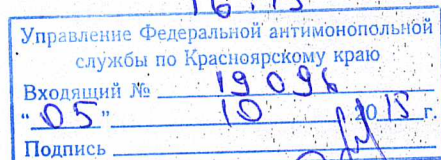 16:15
Управление Федеральной антимонопольной
службы по Красноярскому краю
Входящий № 19096
"05" 10 2015 г.
Подпись